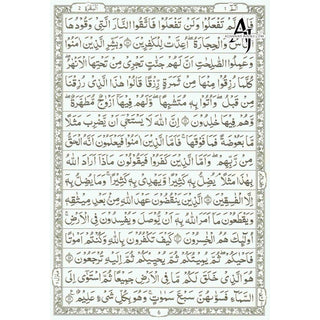 فَإِن لَّمْ تَفْعَلُوا وَلَن تَفْعَلُوا فَاتَّقُوا النَّارَ الَّتِي وَقُودُهَا
النَّاسُ وَالْحِجَارَةُ أُعِدَّتْ لِلْكٰفِرِينَ وَبَشِّرِ الَّذِينَ اٰمَنُوا
وَعَمِلُوا الصّٰلِحٰتِ أَنَّ لَهُمْ جَنّٰتٍ تَجْرِي مِن تَحْتِهَا الْأَنْهٰرُ
كُلَّمَا رُزِقُوا مِنْهَا مِن ثَمَرَةٍ رِّزْقًا قَالُوا هٰذَا الَّذِي رُزِقْنَا
مِن قَبْلُ وَأُتُوا بِهِ مُتَشٰبِهًا وَلَهُمْ فِيهَا أَزْوَاجٌ مُّطَهَّرَةٌ
وَهُمْ فِيهَا خٰلِدُونَ إِنَّ اللّٰهَ لَا يَسْتَحْيِي أَن يَضْرِبَ مَثَلًا
مَّا بَعُوضَةً فَمَا فَوْقَهَا فَأَمَّا الَّذِينَ اٰمَنُوا فَيَعْلَمُونَ أَنَّهُ الْحَقُّ
مِن رَّبِّهِمْ وَأَمَّا الَّذِينَ كَفَرُوا فَيَقُولُونَ مَاذَا أَرَادَ اللّٰهُ
بِهٰذَا مَثَلًا يُضِلُّ بِهِ كَثِيرًا وَيَهْدِي بِهِ كَثِيرًا وَمَا يُضِلُّ بِهِ
إِلَّا الْفٰسِقِينَ الَّذِينَ يَنقُضُونَ عَهْدَ اللّٰهِ مِن بَعْدِ مِيثٰقِهِ
وَيَقْطَعُونَ مَا أَمَرَ اللّٰهُ بِهِ أَن يُوصَلَ وَيُفْسِدُونَ فِي الْأَرْضِ
أُولٰئِكَ هُمُ الْخٰسِرُونَ كَيْفَ تَكْفُرُونَ بِاللّٰهِ وَكُنتُمْ أَمْوَاتًا
فَأَحْيَاكُمْ ثُمَّ يُمِيتُكُمْ ثُمَّ يُحْيِيكُمْ ثُمَّ إِلَيْهِ تُرْجَعُونَ
هُوَ الَّذِي خَلَقَ لَكُم مَّا فِي الْأَرْضِ جَمِيعًا ثُمَّ اسْتَوٰى إِلَى
السَّمَاءِ فَسَوّٰىهُنَّ سَبْعَ سَمٰوٰتٍ وَهُوَ بِكُلِّ شَيْءٍ عَلِيمٌ